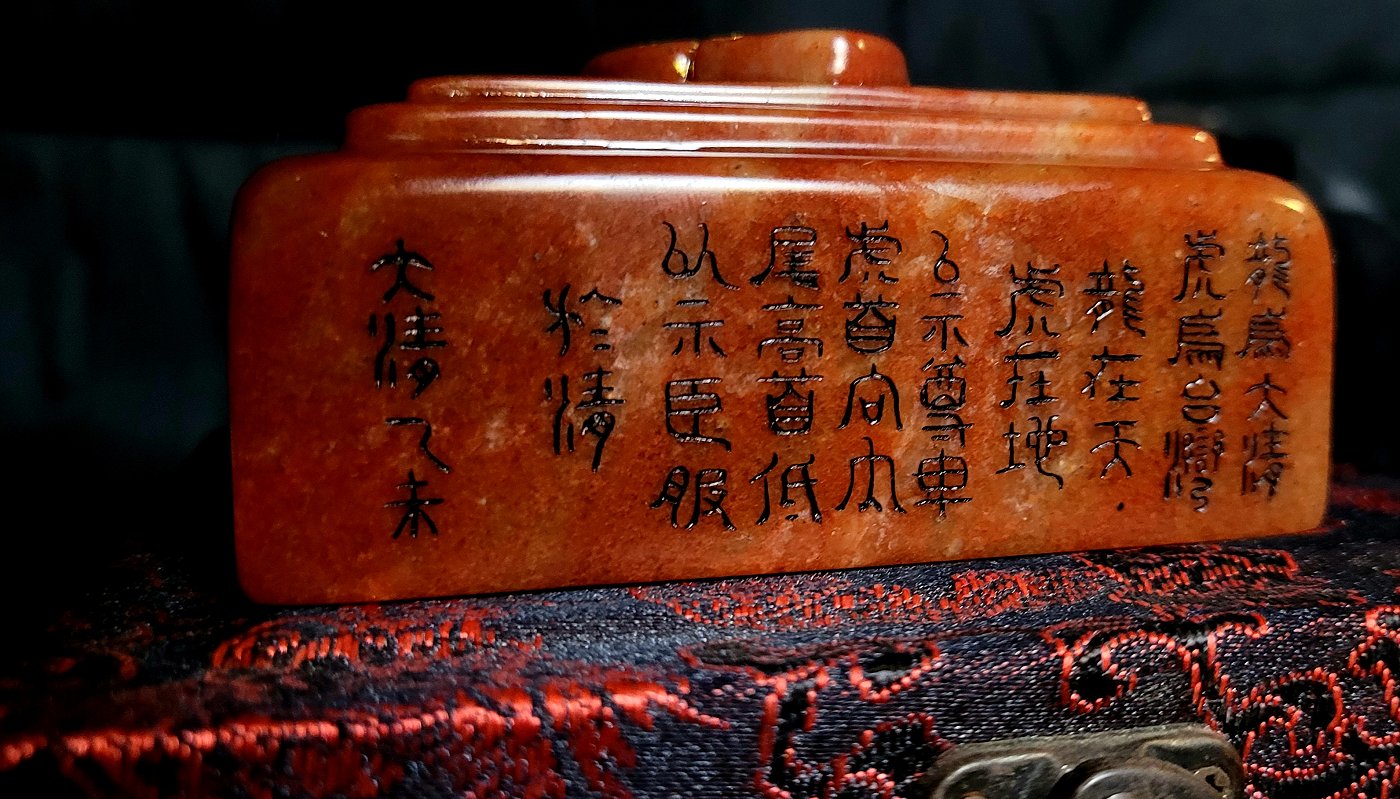 龍為大清
虎為台灣
龍在天
虎在地
以示尊卑
虎首向内
尾高首低
以示臣服
於清
大清乙未